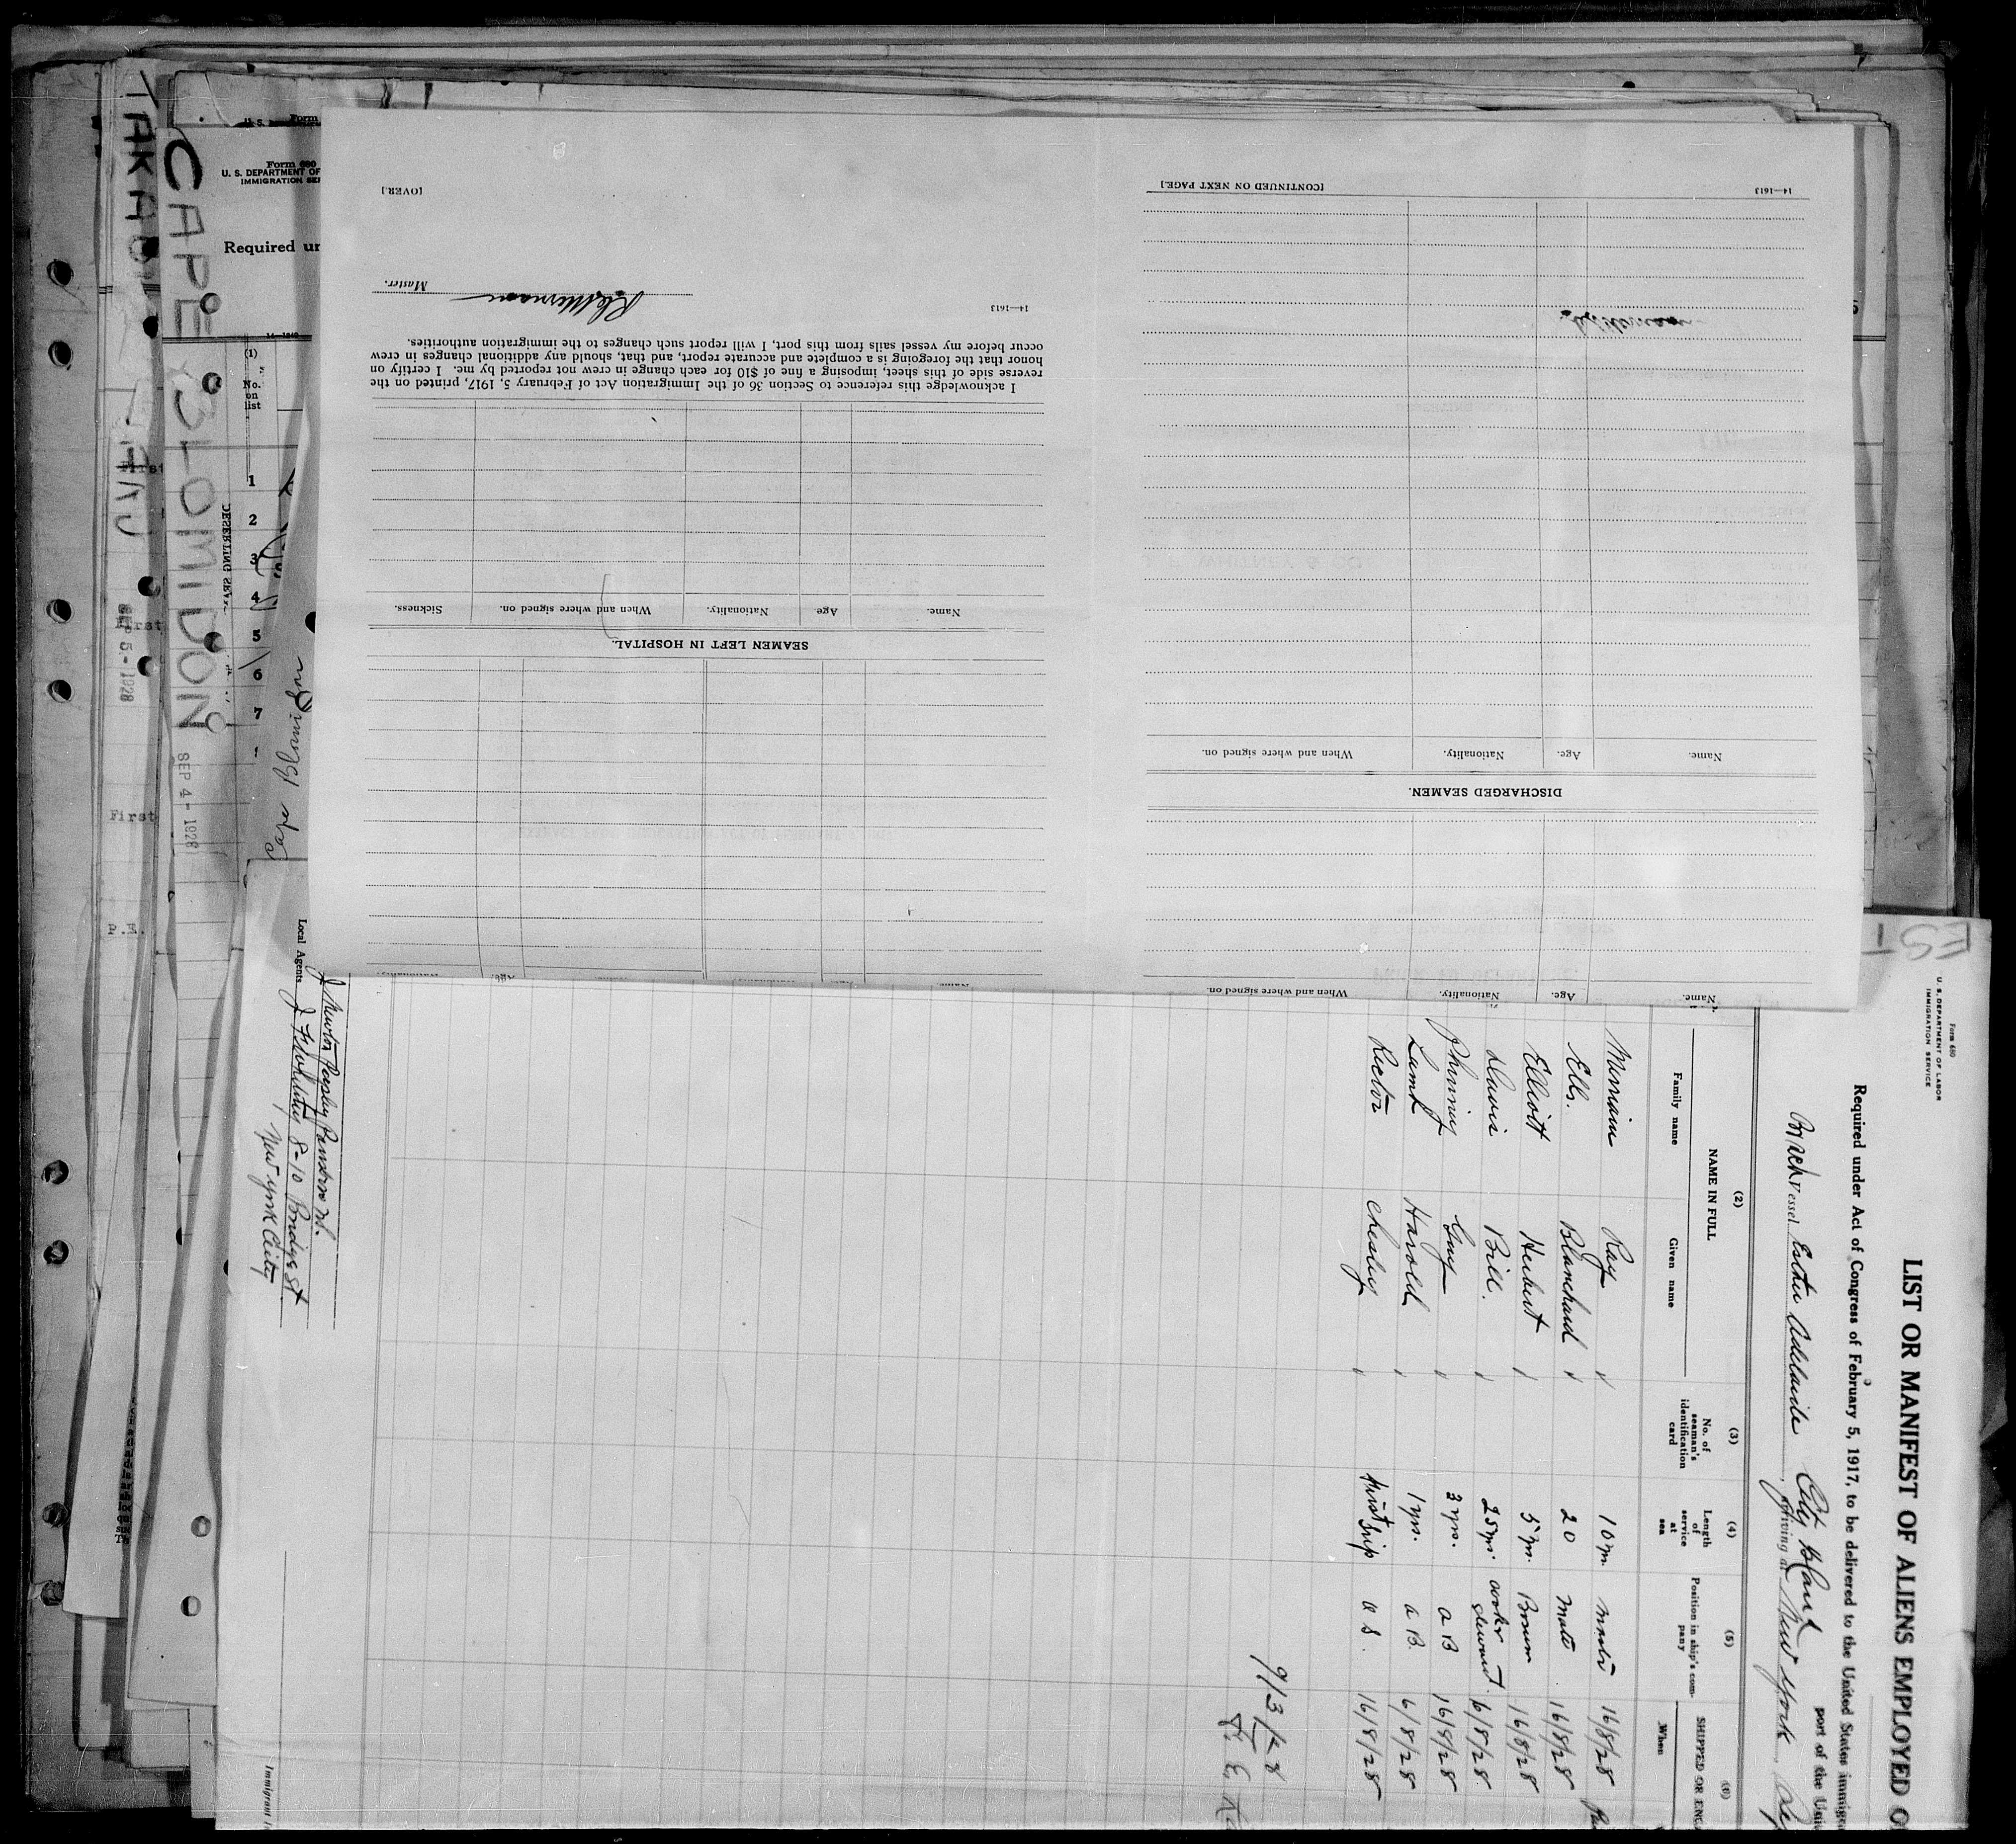 TAKAO
MARU
SEP 5 - 1928
CAPE BLOMIDON
SEP 4 - 1928
Form 680
U. S. DEPARTMENT OF
IMMIGRATION SER
Required un
(1)
No.
on
list
1
2
3
4
5
6
7
First
First
First
P.E.
14—1613
[CONTINUED ON NEXT PAGE.]
DISCHARGED SEAMEN.
Name. Age. Nationality. When and where signed on.
Name. Age. Nationality. When and where signed on.
SEAMEN LEFT IN HOSPITAL.
Name. Age. Nationality. When and where signed on. Sickness.
I acknowledge this reference to Section 36 of the Immigration Act of February 5, 1917, printed on the
reverse side of this sheet, imposing a fine of $10 for each change in crew not reported by me. I certify on
honor that the foregoing is a complete and accurate report, and that, should any additional changes in crew
occur before my vessel sails from this port, I will report such changes to the immigration authorities.
14—1613
Master.
[OVER.]
EST
Form 680
U. S. DEPARTMENT OF LABOR
IMMIGRATION SERVICE
LIST OR MANIFEST OF ALIENS EMPLOYED O
Required under Act of Congress of February 5, 1917, to be delivered to the United States immigra
port of the Uni
Vessel Esther Adelaide City Island
arriving at New York
(2) (3) (4) (5) (6)
NAME IN FULL
Family name Given name
No. of seaman's identification card
Length of service at sea
Position in ship's company
SHIPPED OR ENGA
When
Merriam Ray 10 yr. Master 16/8/28
Ells. Blanchard 20 Mate 16/8/28
Elliott Herbert 5 yr. Bosun 16/8/28
Davis Bill. 25 yr. cook & steward 16/8/28
Phinney Guy 3 yrs. A B 16/8/28
Lamb Harold 1 yrs. A B. 16/8/28
Rector Chesley First trip O S. 16/8/28
9/3/28
Newton Pugsley Parrsboro N.S.
Local Agents J F Whitney 8-10 Bridge St
New York City
Immigrant In